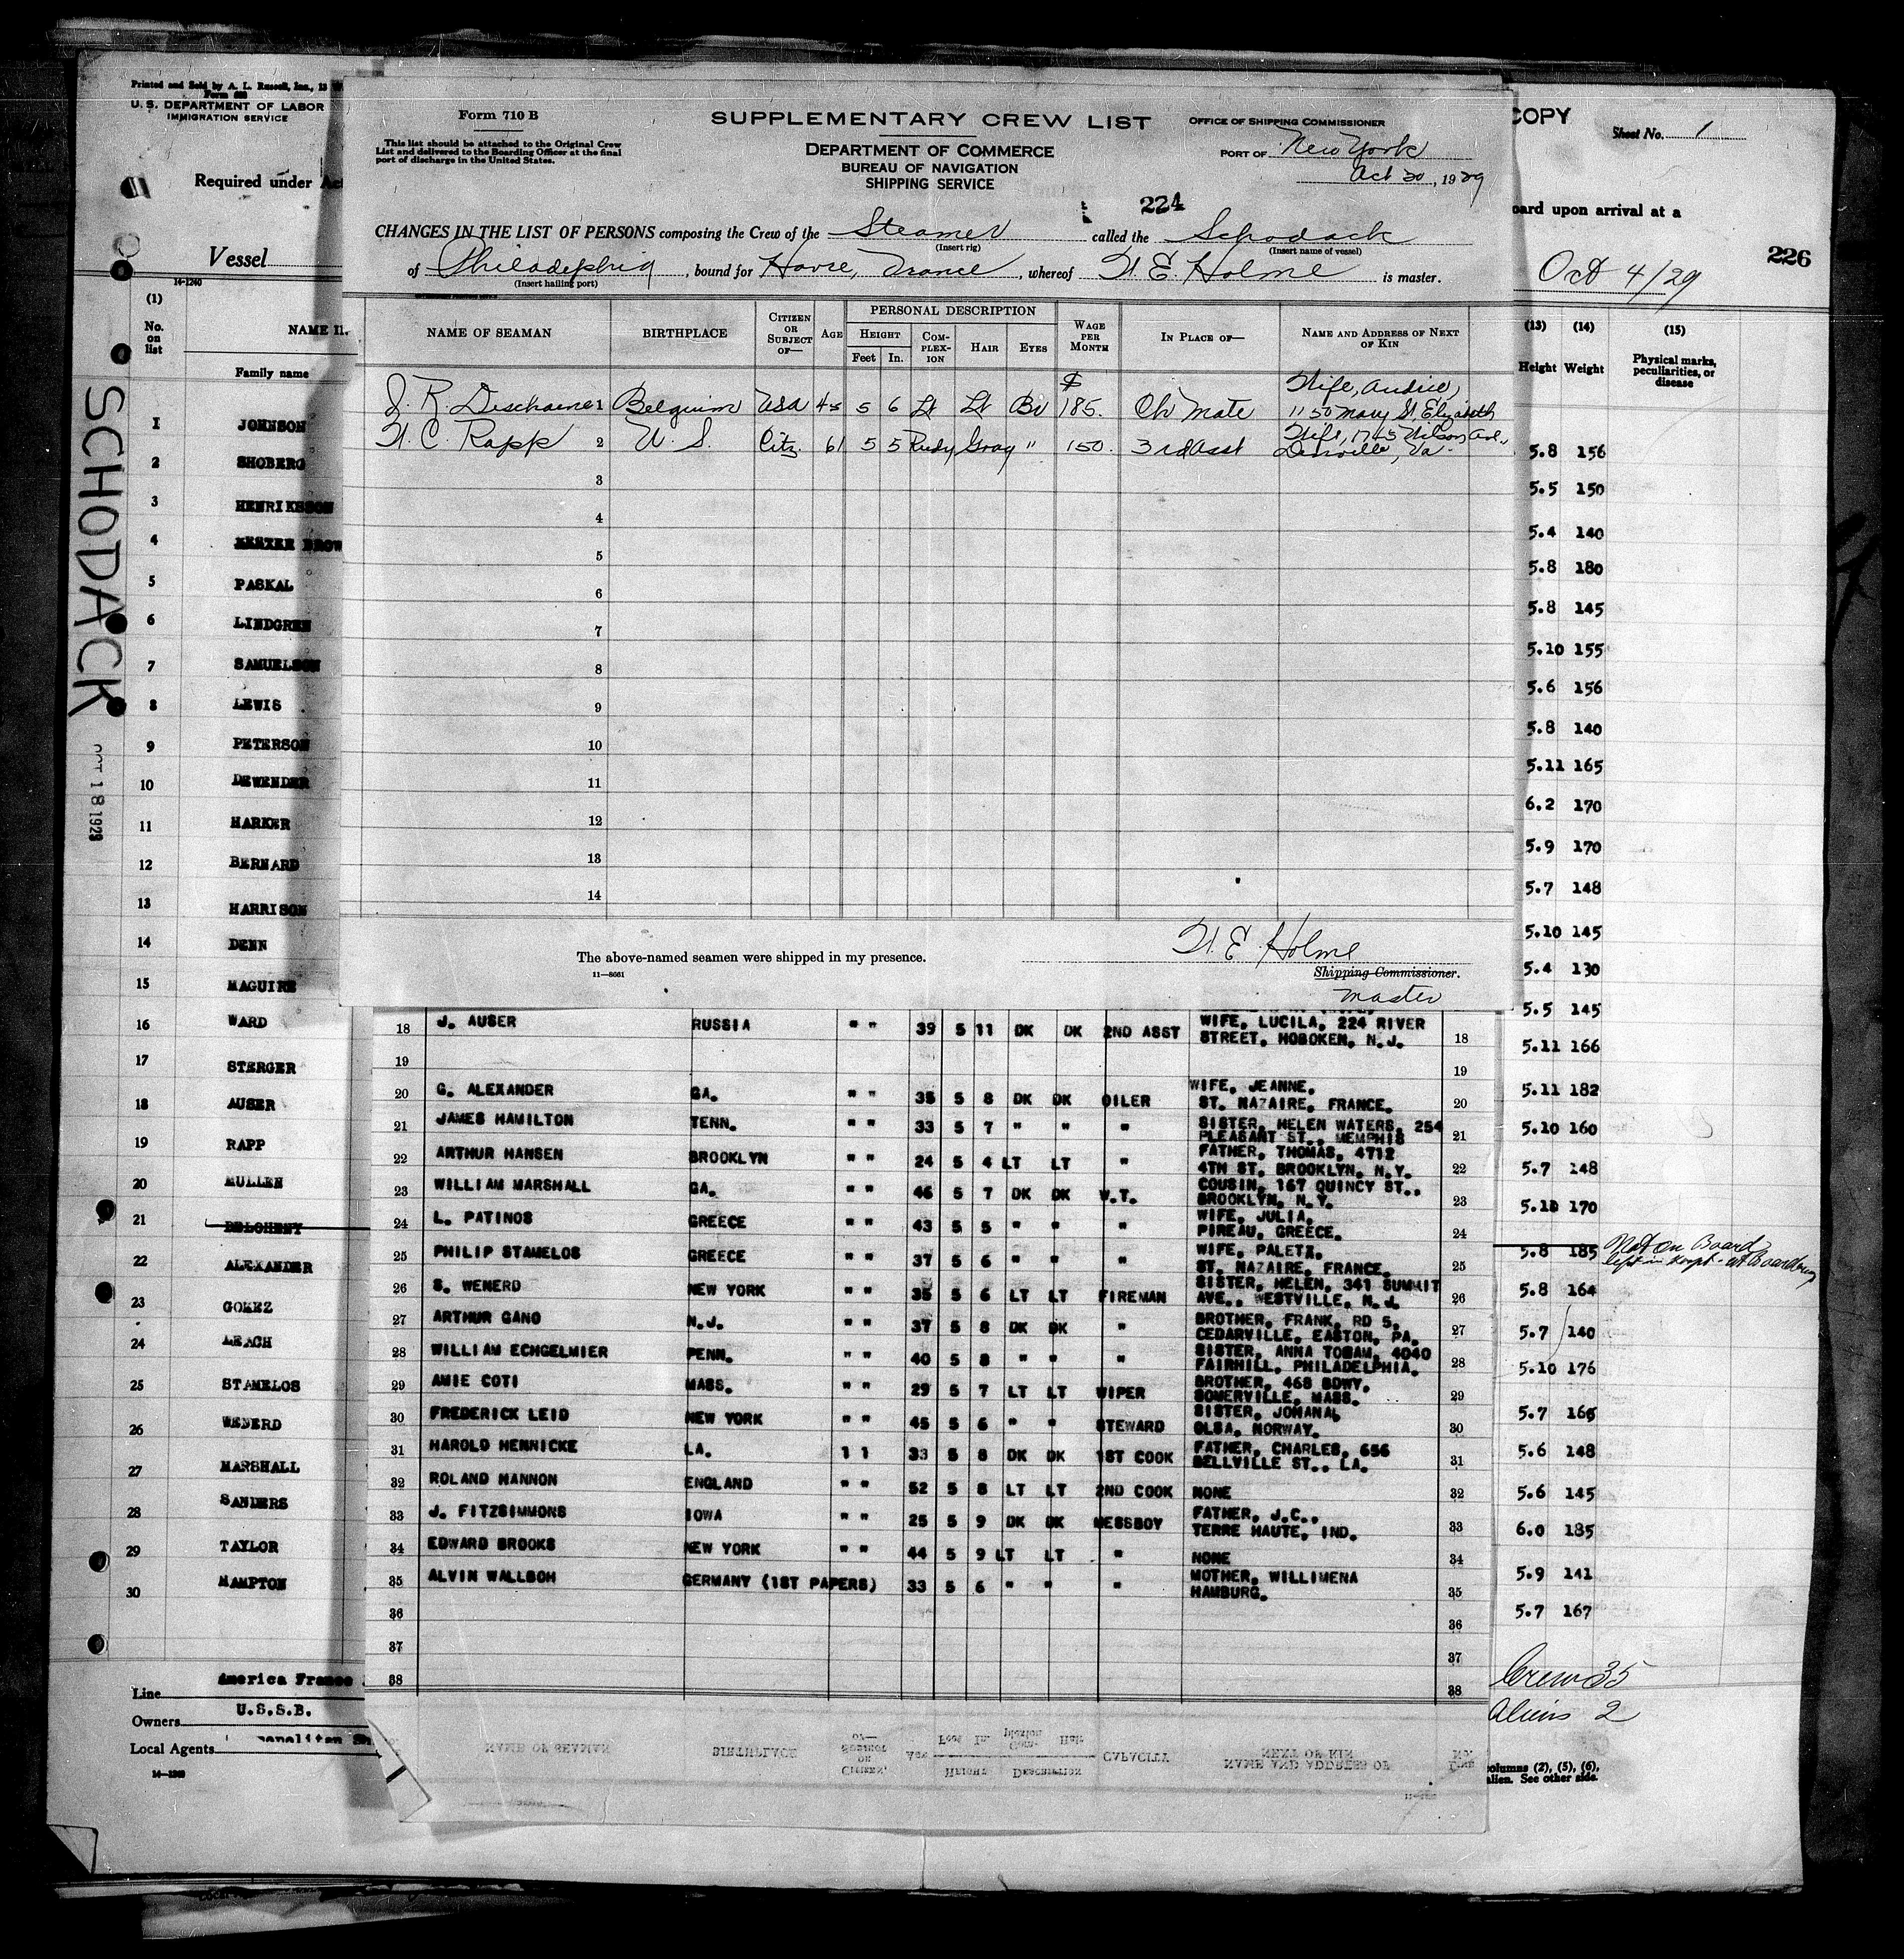 Printed and Sold by A. L. Russell, Inc., 13
Form 680
U. S. DEPARTMENT OF LABOR
IMMIGRATION SERVICE
Required under Act
Vessel
14-1240
(1)
No. on list
Family name
SCHODACK
OCT 18 1929
1 JOHNSON
2 SHOBERG
3 HENRIKSSON
4
5 PASKAL
6 LINDGREN
7 SAMUELSON
8 LEWIS
9 PETERSON
10 DEWENDER
11 HARKER
12 BERNARD
13 HARRISON
14 DENN
15 MAGUIRE
16 WARD
17 STERGER
18 AUSER
19 RAPP
20 MULLEN
21
22 ALEXANDER
23 GOMEZ
24 LEACH
25 STAMELOS
26 WENERD
27 MARSHALL
28 SANDERS
29 TAYLOR
30 HAMPTON
Line America France
Owners U.S.S.B.
Local Agents
Form 710 B
This list should be attached to the Original Crew
List and delivered to the Boarding Officer at the final
port of discharge in the United States.
SUPPLEMENTARY CREW LIST
DEPARTMENT OF COMMERCE
BUREAU OF NAVIGATION
SHIPPING SERVICE
OFFICE OF SHIPPING COMMISSIONER
PORT OF New York
Oct 20, 1929
224
CHANGES IN THE LIST OF PERSONS composing the Crew of the Steamer called the Schodack
(Insert rig) (Insert name of vessel)
of Philadelphia, bound for Havre, France, whereof H. E. Holme is master.
(Insert hailing port)
NAME OF SEAMAN BIRTHPLACE CITIZEN OR SUBJECT OF— AGE PERSONAL DESCRIPTION WAGE PER MONTH IN PLACE OF— NAME AND ADDRESS OF NEXT OF KIN
HEIGHT COMPLEXION HAIR EYES
Feet In.
$ Wife,
1 Belguim USA 45 5 6 Lt Lt Br 185. Ch Mate 1150 Mary St Elizabeth
H. C. Rapp 2 U. S. Citz. 61 5 5 Rudy Gray " 150. 3rd Asst Wife, 1745 Wilson Ave., Va.
3
4
5
6
7
8
9
10
11
12
13
14
The above-named seamen were shipped in my presence.
11—8661
H. E. Holme
Shipping Commissioner.
Master
18 J. AUSER RUSSIA " " 39 5 11 DK DK 2ND ASST WIFE, LUCILA, 224 RIVER STREET, HOBOKEN, N.J. 18
19 19
20 G. ALEXANDER GA. " " 35 5 8 DK DK OILER WIFE, JEANNE. ST. NAZAIRE, FRANCE. 20
21 JAMES HAMILTON TENN. " " 33 5 7 " " " SISTER, HELEN WATERS, 254 PLEASANT ST., MEMPHIS 21
22 ARTHUR HANSEN BROOKLYN " " 24 5 4 LT LT " FATHER, THOMAS, 4712 4TH ST. BROOKLYN, N.Y. 22
23 WILLIAM MARSHALL GA. " " 46 5 7 DK DK W.T. COUSIN, 167 QUINCY ST., BROOKLYN, N.Y. 23
24 L. PATINOS GREECE " " 43 5 5 " " " WIFE, JULIA, PIREAU, GREECE. 24
25 PHILIP STAMELOS GREECE " " 37 5 6 " " " WIFE, PALETX, ST. NAZAIRE, FRANCE. 25
26 S. WENERD NEW YORK " " 35 5 6 LT LT FIREMAN SISTER, HELEN, 341 SUMMIT AVE., WESTVILLE, N.J. 26
27 ARTHUR GANO N.J. " " 37 5 8 DK DK " BROTHER, FRANK, RD 5, CEDARVILLE, EASTON, PA. 27
28 WILLIAM ECHGELMIER PENN. " " 40 5 8 " " " SISTER, ANNA TOBAM, 4040 FAIRHILL, PHILADELPHIA. 28
29 AMIE COTI MASS. " " 29 5 7 LT LT WIPER BROTHER, 468 BDWY, SOMERVILLE, MASS. 29
30 FREDERICK LEID NEW YORK " " 45 5 6 " " STEWARD SISTER, JOHANA, OLSA, NORWAY. 30
31 HAROLD HENNICKE LA. 1 1 33 5 8 DK DK 1ST COOK FATHER, CHARLES, 656 BELLVILLE ST., LA. 31
32 ROLAND HANNON ENGLAND " " 52 5 8 LT LT 2ND COOK NONE 32
33 J. FITZSIMMONS IOWA " " 25 5 9 DK DK MESSBOY FATHER, J.C., TERRE HAUTE, IND. 33
34 EDWARD BROOKS NEW YORK " " 44 5 9 LT LT " NONE 34
35 ALVIN WALLBOH GERMANY (1ST PAPERS) 33 5 6 " " " MOTHER, WILLIMENA HAMBURG. 35
36 36
37 37
38 38
NAME OF SEAMAN BIRTHPLACE CITIZEN OR SUBJECT OF— AGE Feet In. HEIGHT Complexion Hair DESCRIPTION CAPACITY NAME AND ADDRESS OF NEXT OF KIN
COPY
Sheet No. 1
oard upon arrival at a
226
Oct 4/29
(13) (14) (15)
Height Weight Physical marks, peculiarities, or disease
5.8 156
5.5 150
5.4 140
5.8 180
5.8 145
5.10 155
5.6 156
5.8 140
5.11 165
6.2 170
5.9 170
5.7 148
5.10 145
5.4 130
5.5 145
5.11 166
5.11 182
5.10 160
5.7 148
5.10 170
5.8 185 Not on Board
5.8 164
5.7 140
5.10 176
5.7 165
5.6 148
5.6 145
6.0 185
5.9 141
5.7 167
Crew 35
Aliens 2
olumns (2), (5), (6),
alien. See other side.